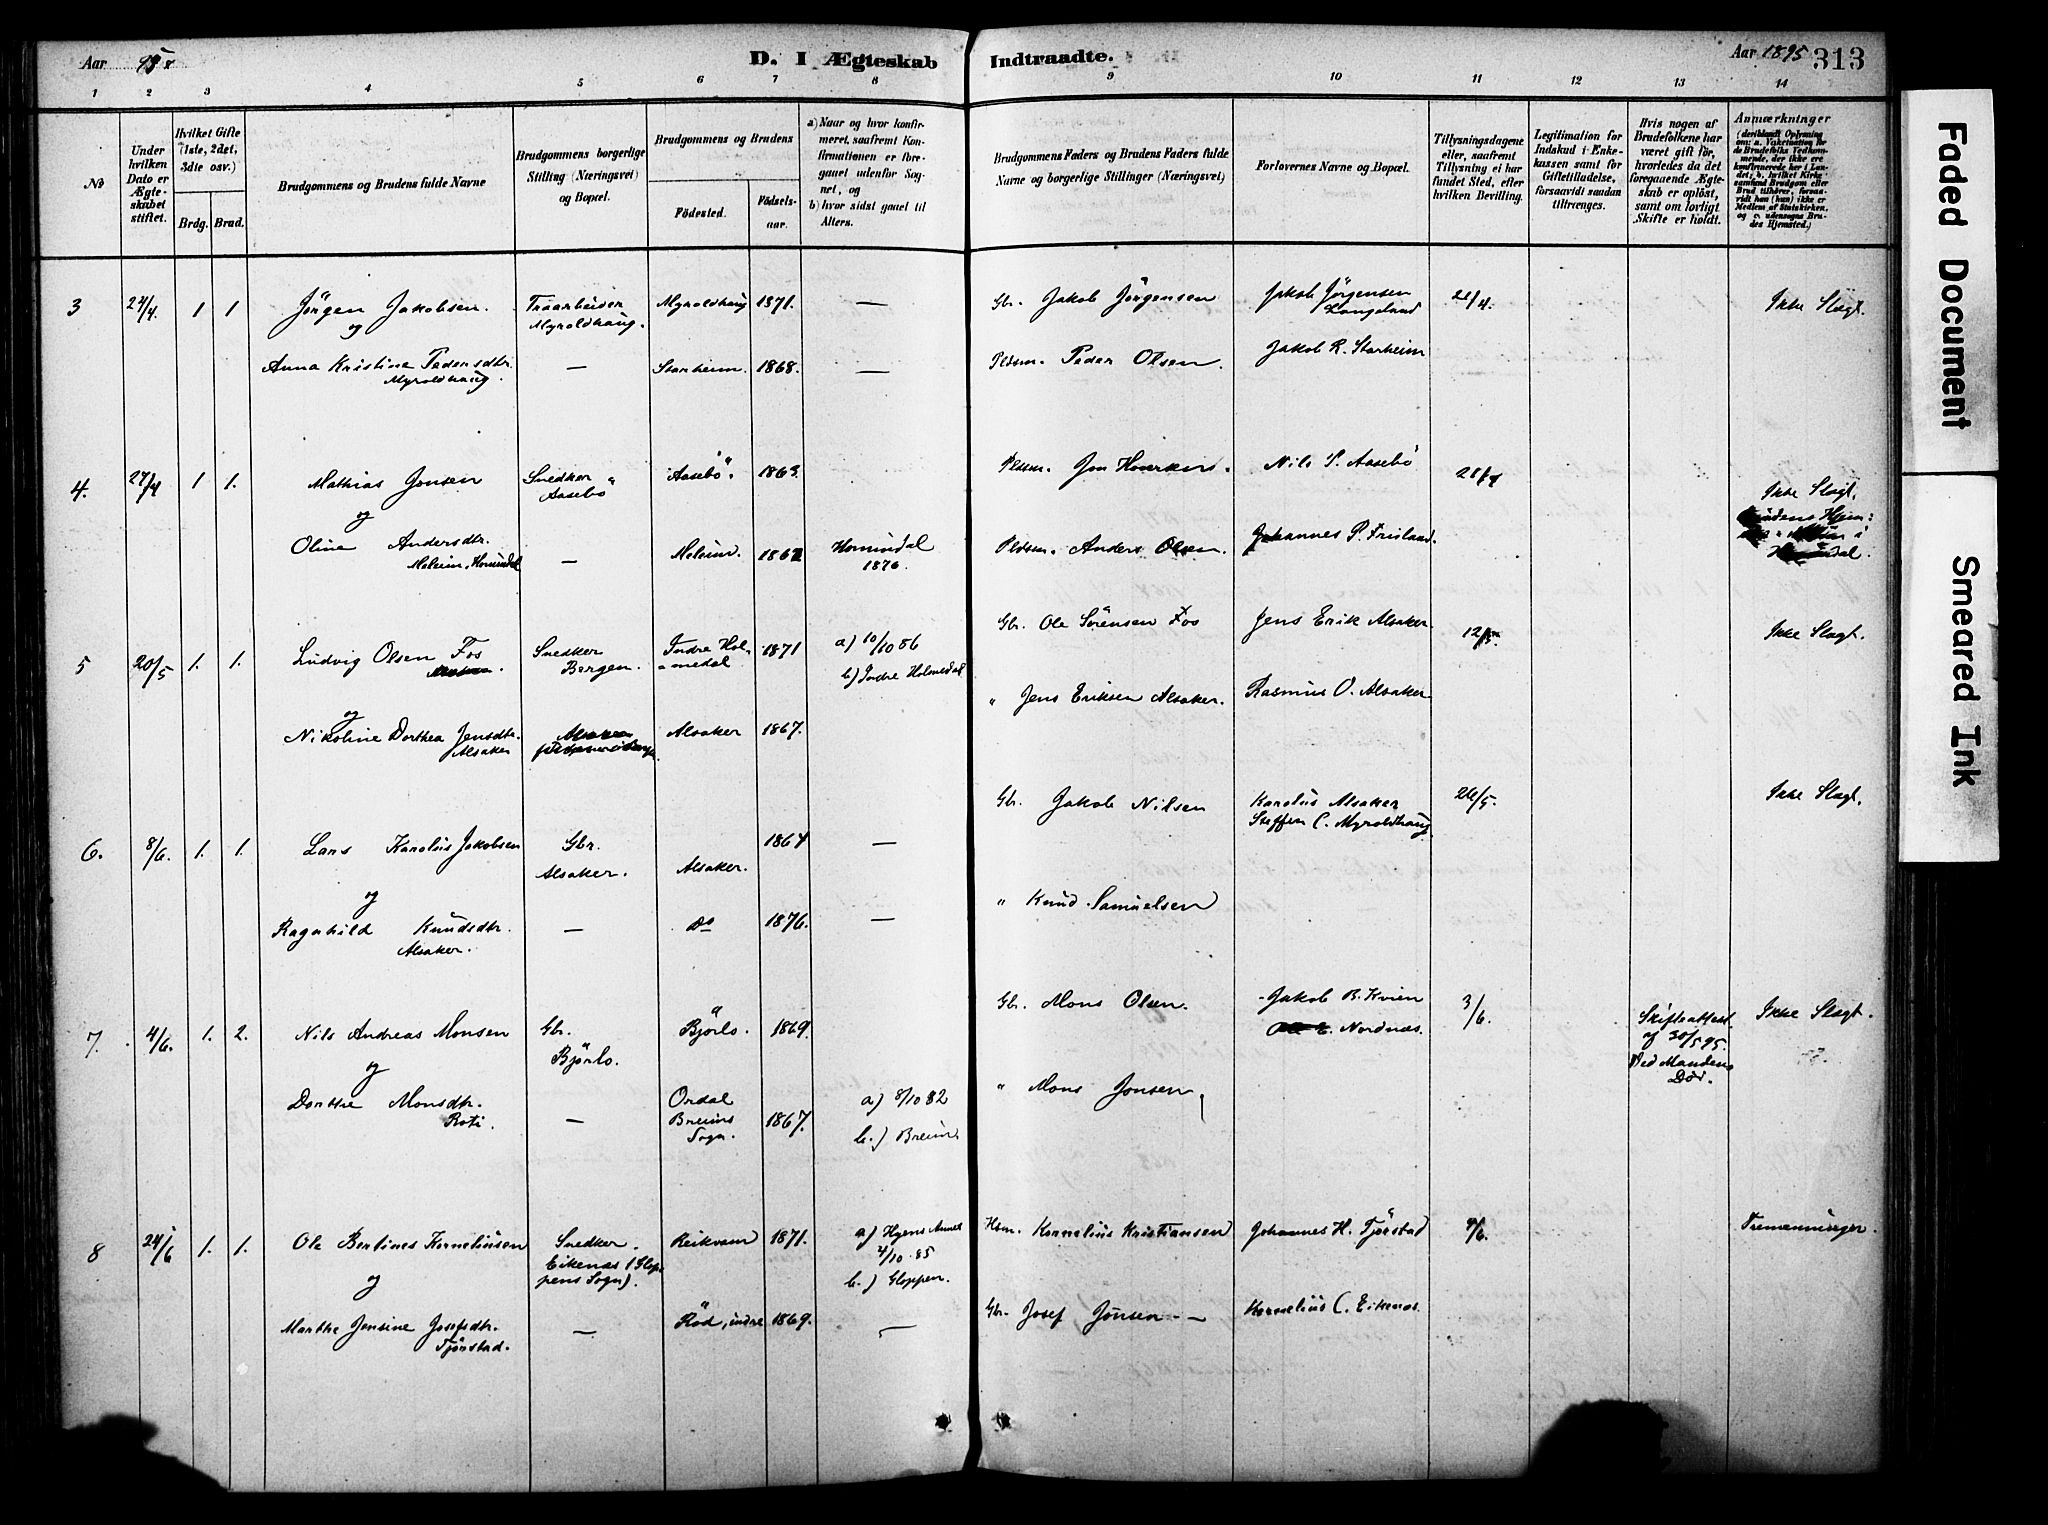 Aar 95
D. I Ægteskab Indtraadte.
Aar 1895
313
1 2 3 4 5 6 7 8 9 10 11 12 13 14
No
Under hvilken Dato er Ægteskabet stiftet.
Hvilket Gifte (1ste, 2det, 3die osv.)
Brdg. Brud.
Brudgommens og Brudens fulde Navne
Brudgommens borgerlige Stilling (Næringsvei) og Bopæl.
Brudgommens og Brudens
Fødested. Fødselsaar.
a) Naar og hvor konfirmeret, saafremt Konfirmationen er foregaaet udenfor Sognet, og
b) hvor sidst gaaet til Alters.
Brudgommens Faders og Brudens Faders fulde Navne og borgerlige Stillinger (Næringsvei)
Forlovernes Navne og Bopæl.
Tillysningsdagene eller, saafremt Tillysning ei har fundet Sted, efter hvilken Bevilling.
Legitimation for Indskud i Enkekassen samt for Giftetilladelse, forsaavidt saadan tiltrænges.
Hvis nogen af Brudefolkene har været gift før, hvorledes da det foregaaende Ægteskab er opløst, samt om lovligt Skifte er holdt.
Anmærkninger
(deriblandt Oplysning om: a. Vaksination for de Brudefolks Vedkommende, der ikke ere konfirmerede her i Landet; b. hvilket Kirkesamfund Brudgom eller Brud tilhører, forsaavidt han (hun) ikke er Medlem af Statskirken, og c. udensogns Brudes Hjemsted.)
3 24/4. 1 1 Jörgen Jakobsen. Traarbeider Myroldhaug. Myroldhaug 1871. — Gbr. Jakob Jörgensen Jakob Jörgensen Langeland 21/4. Ikke Slægt.
og
Anna Kristine Pedersdtr. Myroldhaug. — Starheim. 1868. — Pldsm. Peder Olsen. Jakob R. Starheim
4. 27/4 1 1. Mathias Jonsen Snedker Aasebö Aasebö. 1863. Pldsm. Jon Nils S. Aasebö 21/4 Ikke Slægt.
og
Oline Andersdtr. Meleim, Hornindal — Meleim. 1862 Hornindal 1876. Pldsm. Anders Olsen. Johannes P. Frisland.
5 20/5 1. 1. Ludvig Olsen Fos Snedker Bergen. Indre Holmedal 1871 a) 10/10 86 b) Indre Holmedal Gbr. Ole Sörensen Fos Jens Erik Alsaker 12/5. Ikke Slægt.
og
Nikoline Dorthea Jensdtr. Alsaker Alsaker 1867. " Jens Eriksen Alsaker. Rasmus O. Alsaker
6. 8/6. 1. 1. Lars Karolus Jakobsen Gbr. Alsaker. Alsaker. 1864 — Gbr. Jakob Nilsen Karolus Alsaker Steffen C. Myroldhaug 26/5. Ikke Slægt.
og
Ragnhild Knudsdtr. Alsaker. — Do 1876. — " Knud Samuelsen
7. 4/6. 1. 2. Nils Andreas Monsen Gbr. Björlo. Björlo. 1869. Gbr. Mons Olsen. Jakob B. Kvien Nordnæs. 3/6. Skifteattest af 30/5 95. Ved Mandens Död. Ikke Slægt.
og
Dorthe Monsdtr. Roti. — Ordal Breims Sogn. 1867. a) 8/10 82 b.) Breim. " Mons Jonsen.
8 24/6 1. 1. Ole Bertines Korneliusen Snedker. Eikenæs (Gloppens Sogn). Reikvam 1871. a) Hyens Annex 4/10.85 b.) Gloppen. Hsm. Kornelius Kristiansen Johannes H. Tjörstad 9/6. Tremenninger.
og
Marthe Jensine Josefsdtr. Tjörstad. — Röd, indre 1869. — Gbr. Josef Jonsen — Kornelius C. Eikenæs.
Faded Document
Smeared Ink